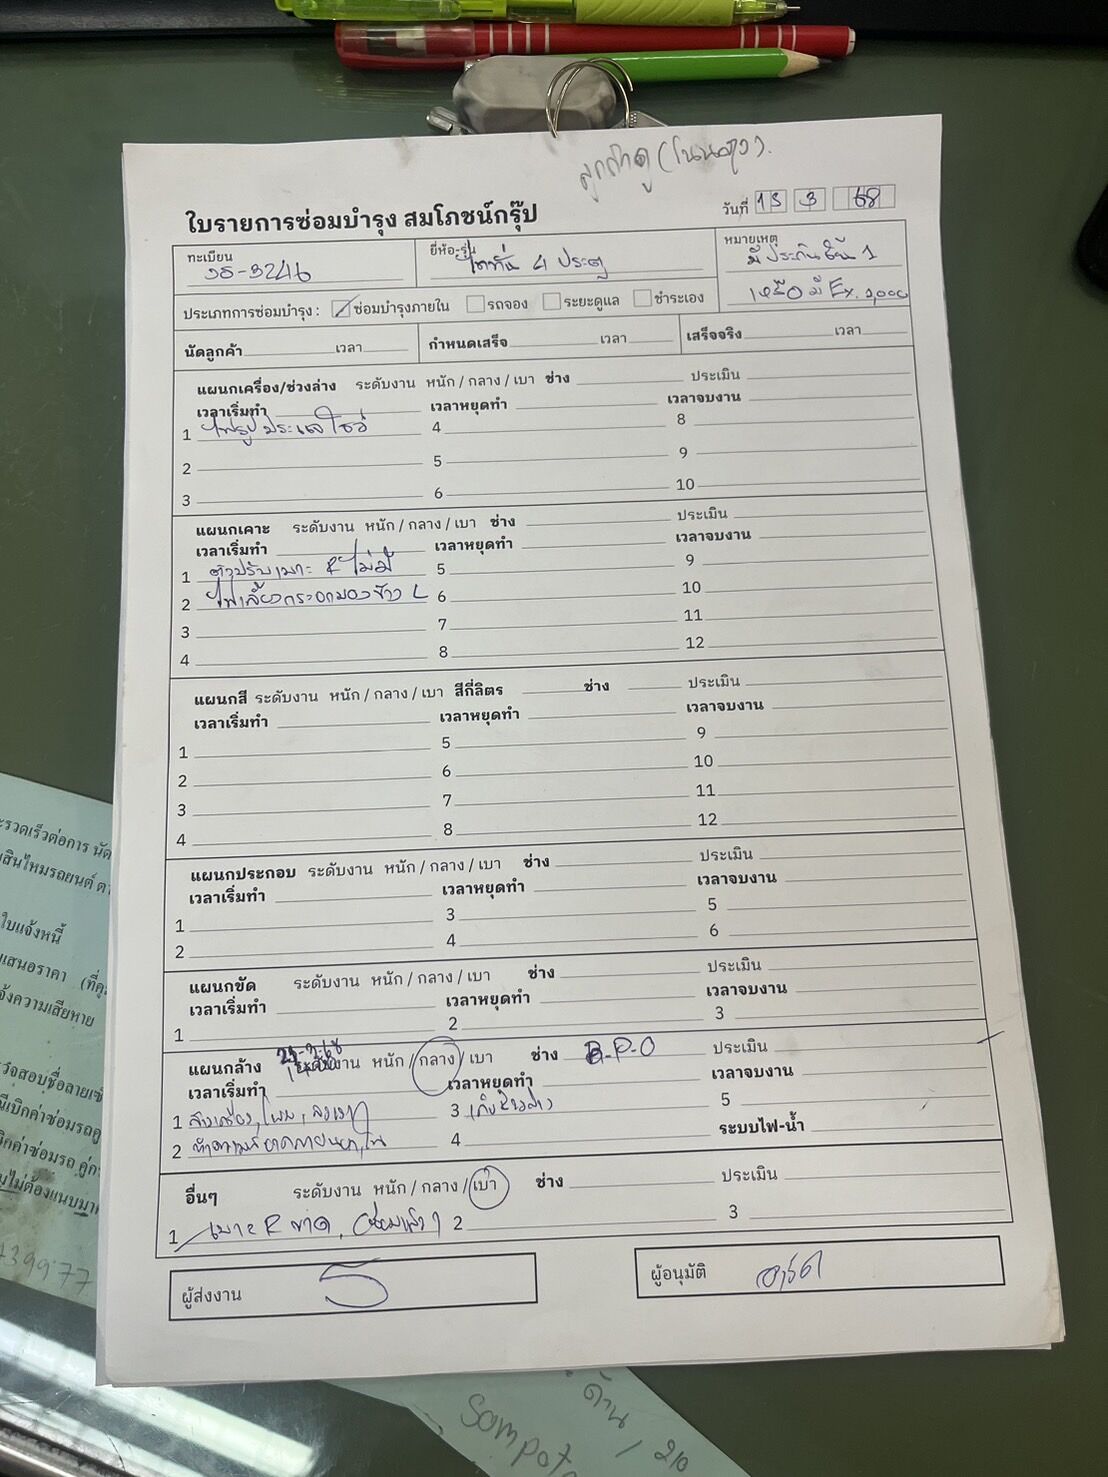 ใบรายการซ่อมบำรุง สมโภชน์กรุ๊ป
วันที่ 13 3 68
ทะเบียน
ยี่ห้อ-รุ่น ไททัน 4 ประตู
หมายเหตุ
มีประกันชั้น 1
เหลือ มี Ex.
ประเภทการซ่อมบำรุง : ซ่อมบำรุงภายใน รถจอง ระยะดูแล ชำระเอง
นัดลูกค้า เวลา กำหนดเสร็จ เวลา เสร็จจริง เวลา
แผนกเครื่อง/ช่วงล่าง ระดับงาน หนัก / กลาง / เบา ช่าง ประเมิน
เวลาเริ่มทำ เวลาหยุดทำ เวลาจบงาน
1 ไฟรูปประแจโชว์ 4 8
2 5 9
3 6 10
แผนกเคาะ ระดับงาน หนัก / กลาง / เบา ช่าง ประเมิน
เวลาเริ่มทำ เวลาหยุดทำ เวลาจบงาน
1 ตัวปรับเบาะ R ไม่มี 5 9
2 ไฟเลี้ยวกระจกมองข้าง L 6 10
3 7 11
4 8 12
แผนกสี ระดับงาน หนัก / กลาง / เบา สีกี่ลิตร ช่าง ประเมิน
เวลาเริ่มทำ เวลาหยุดทำ เวลาจบงาน
1 5 9
2 6 10
3 7 11
4 8 12
แผนกประกอบ ระดับงาน หนัก / กลาง / เบา ช่าง ประเมิน
เวลาเริ่มทำ เวลาหยุดทำ เวลาจบงาน
1 3 5
2 4 6
แผนกขัด ระดับงาน หนัก / กลาง / เบา ช่าง ประเมิน
เวลาเริ่มทำ เวลาหยุดทำ เวลาจบงาน
1 2 3
แผนกล้าง ระดับงาน หนัก / กลาง / เบา ช่าง B-P-O ประเมิน
เวลาเริ่มทำ เวลาหยุดทำ เวลาจบงาน
1 ล้างเครื่อง, 3 5
2 4 ระบบไฟ-น้ำ
อื่นๆ ระดับงาน หนัก / กลาง / เบา ช่าง ประเมิน
1 เบาะ R ขาด, 2 3
ผู้ส่งงาน
ผู้อนุมัติ
ใบแจ้งหนี้
แจ้งความเสียหาย
39977
ด้าน / 210
Sompot